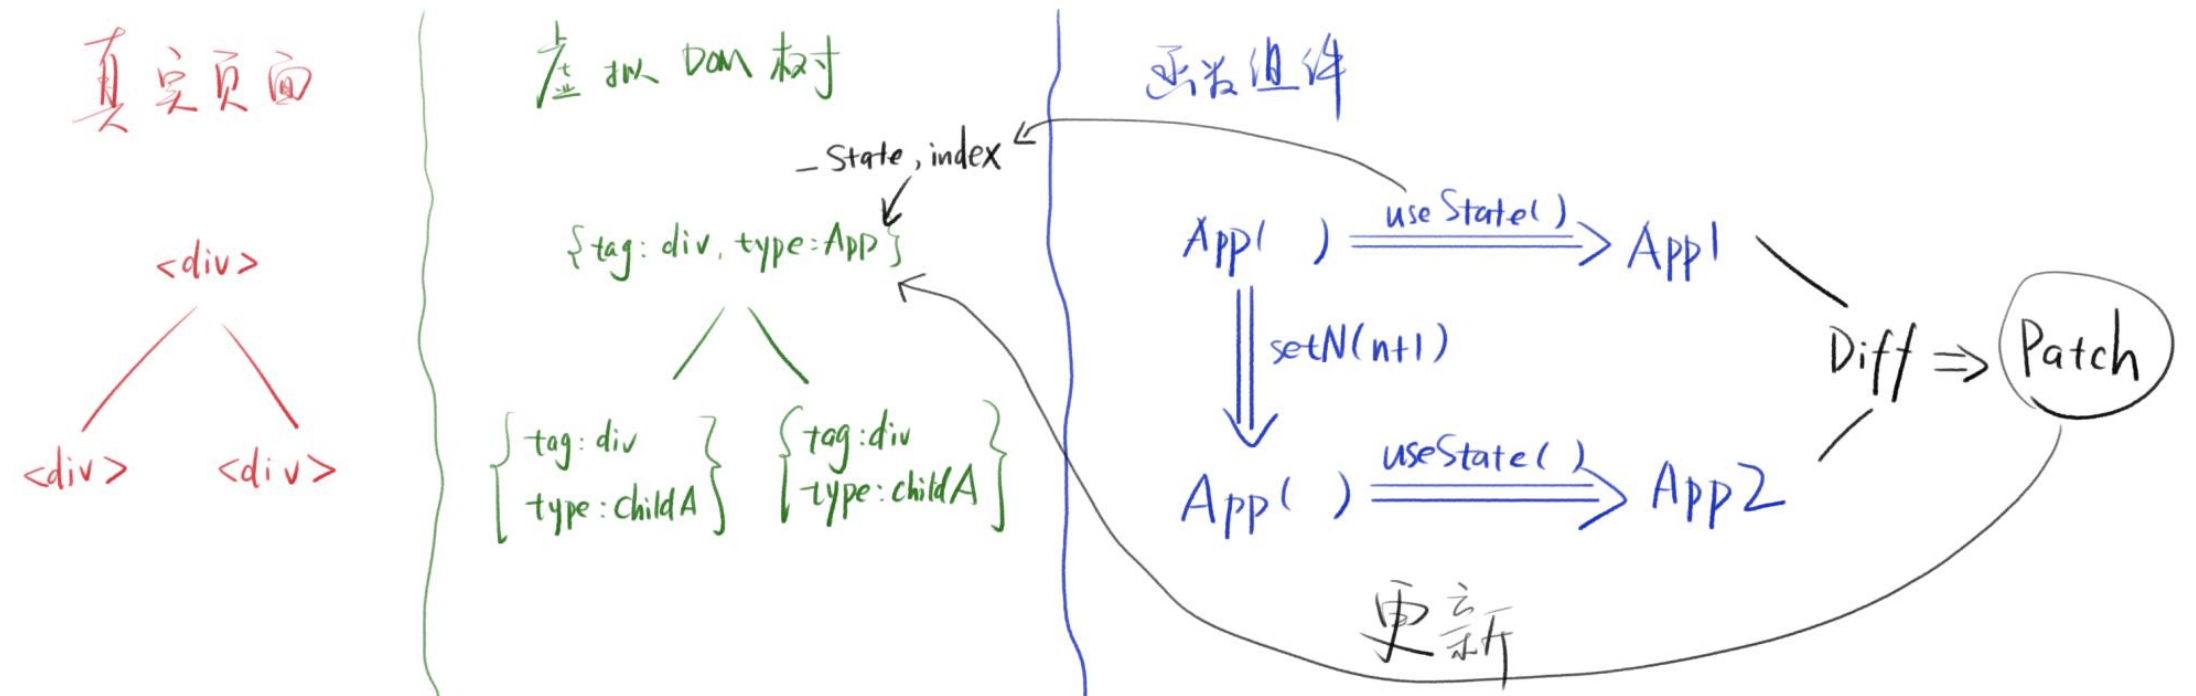 真实页面
<div>
<div>
<div>
虚拟 DOM 树
_State, index
{tag: div, type: App}
{tag: div
type: childA}
{tag: div
type: childA}
函数组件
App( )
useState()
App1
setN(n+1)
App( )
useState( )
App2
Diff => Patch
更新